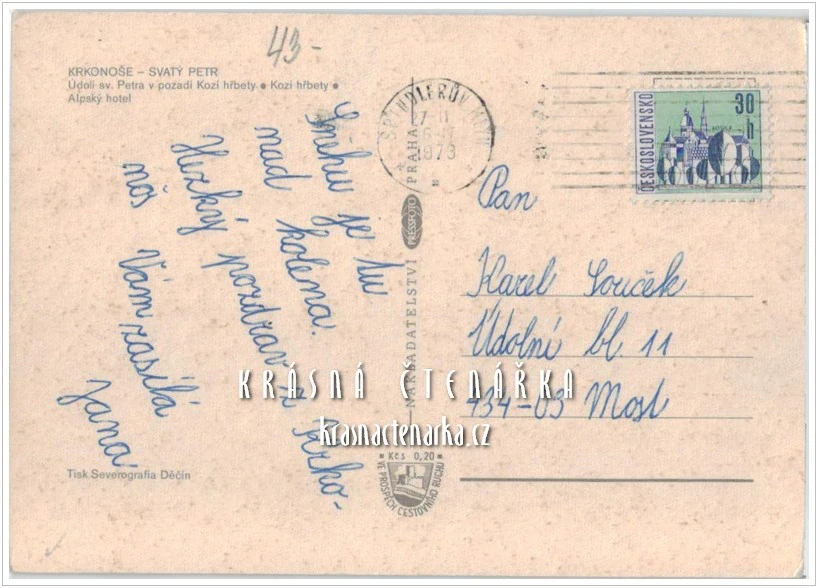 43-
KRKONOŠE – SVATÝ PETR
Údolí sv. Petra v pozadí Kozí hřbety • Kozí hřbety •
Alpský hotel
Sněhu je tu
nad kolena.
Hezký pozdrav z Krko-
noš Vám zasílá
Jana
Tisk Severografia Děčín
NAKLADATELSTVÍ PRESSFOTO PRAHA
ŠPINDLERŮV MLÝN
1973
ČESKOSLOVENSKO
30
h
Pan
Karel Souček
Údolní bl. 11
434-03 Most
KRÁSNÁ ČTENÁŘKA
krasnactenarka.cz
Kčs 0,20
VE PROSPĚCH CESTOVNÍHO RUCHU